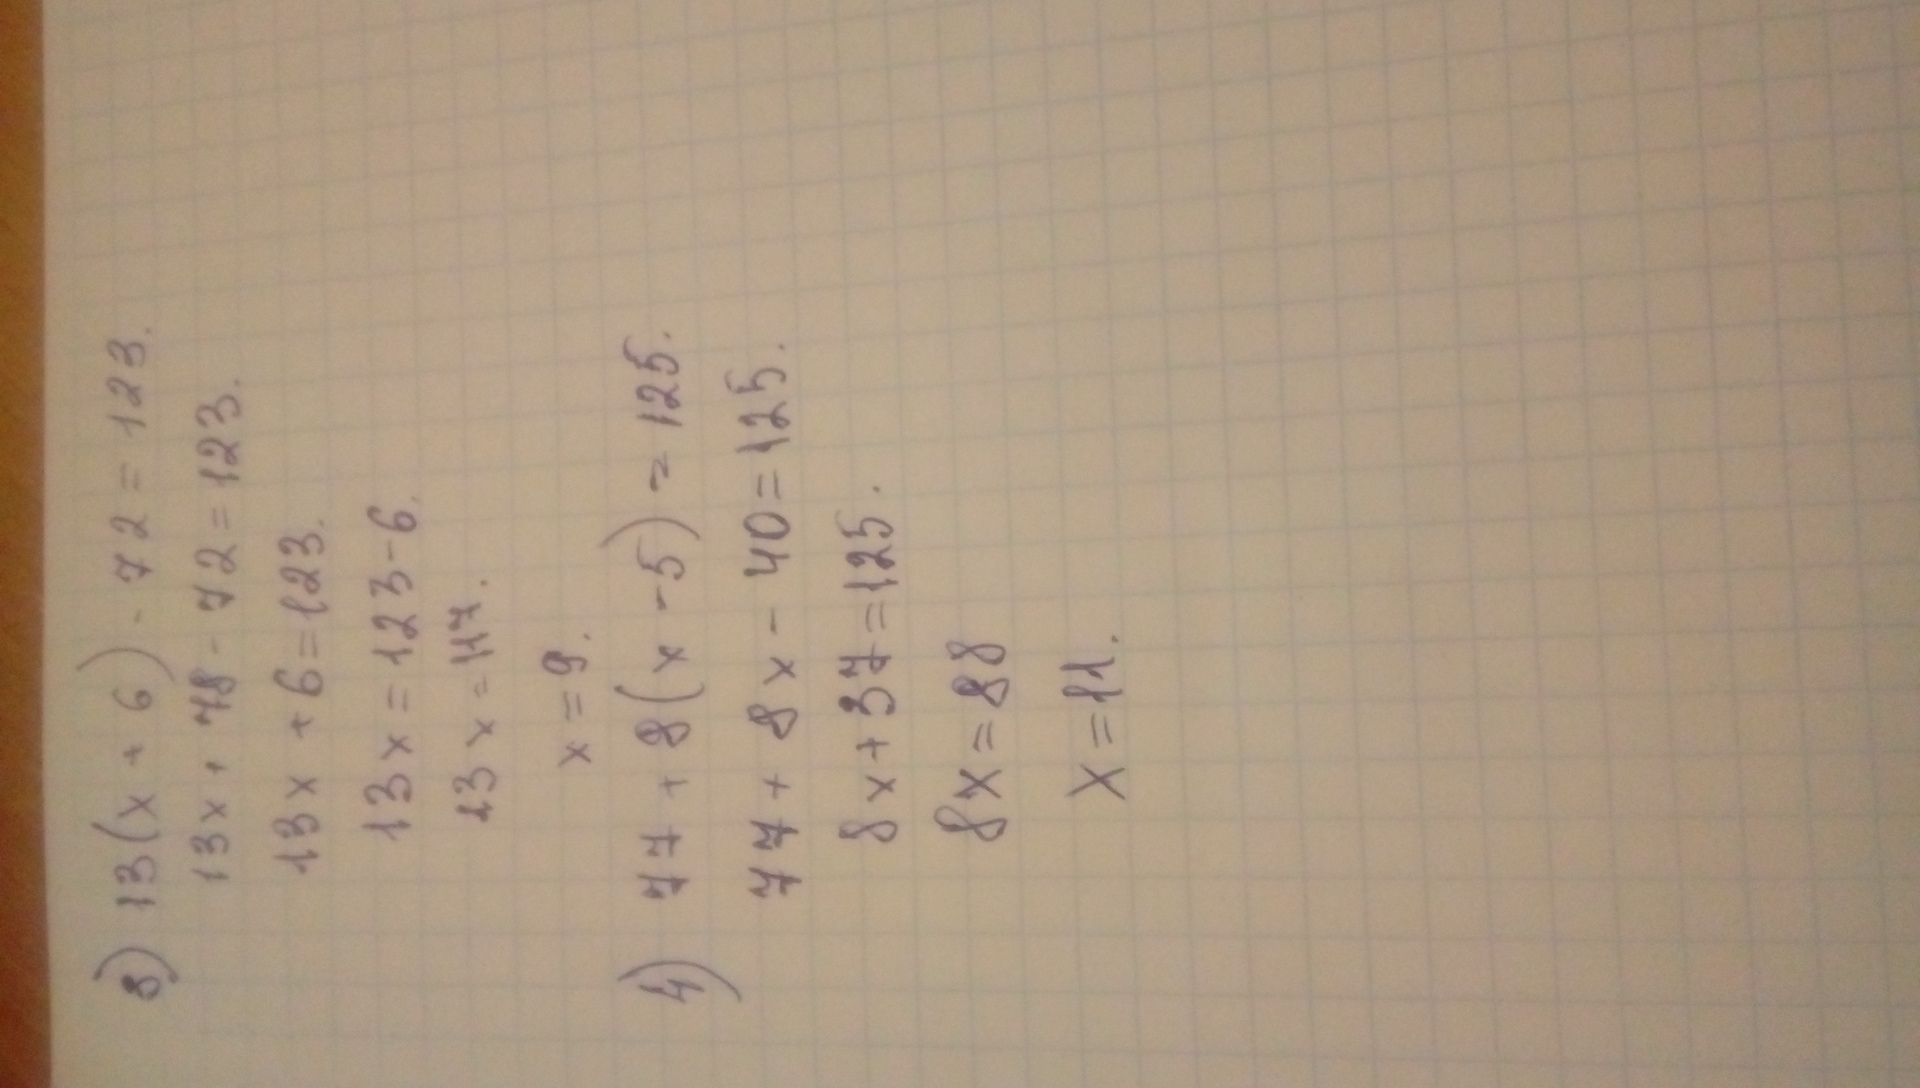 3) 13(x+6)-72=123.
13x+78-72=123.
13x+6=123.
13x=123-6.
13x=117.
x=9.
4) 77+8(x-5)=125.
77+8x-40=125.
8x+37=125.
8x=88
x=11.